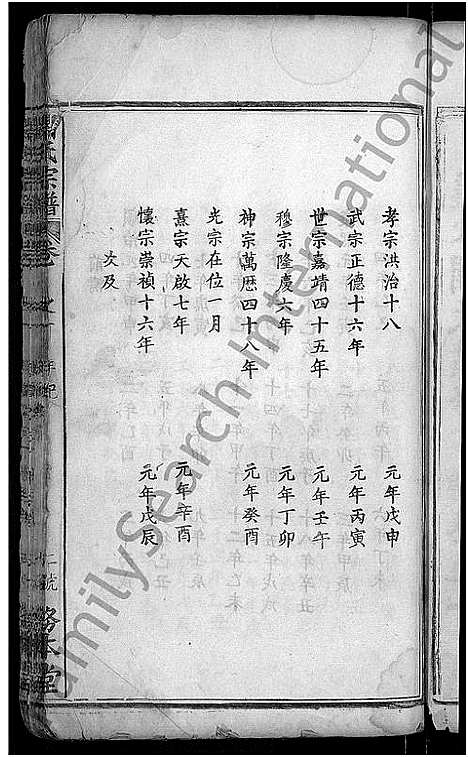 孝宗洪治十八 元年戊申
武宗正德十六年 元年丙寅
世宗嘉靖四十五年 元年壬午
穆宗隆慶六年 元年丁卯
神宗萬歷四十八年 元年癸酉
光宗在位一月
熹宗天啟七年 元年辛酉
懷宗崇禎十六年 元年戊辰
次及
氏宗譜 卷之一 年紀
務本堂
FamilySearch International